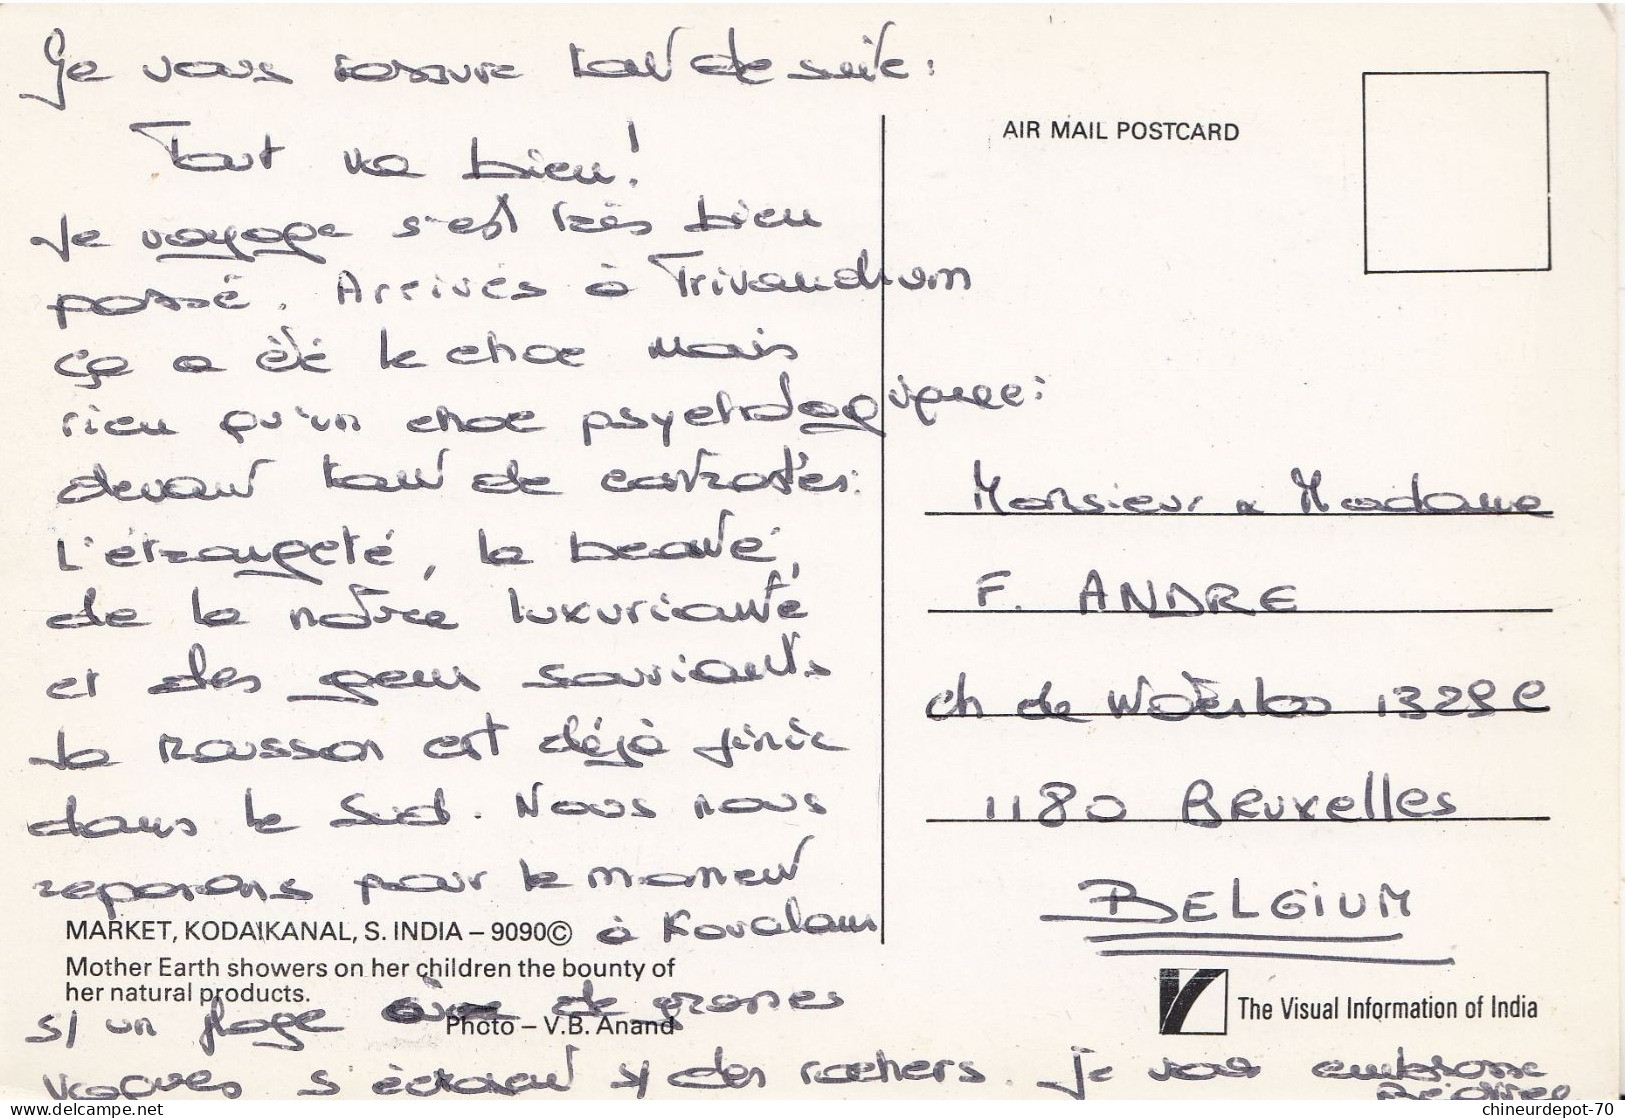 Je vous rassure tout de suite :
Tout va bien !
Le voyage s'est très bien
passé. Arrivés à Trivandrum
ça a été le choc mais
rien qu'un choc psychologique :
devant tant de contrastes :
L'étrangeté, la beauté,
de la nature luxuriante
et des gens souriants
La mousson est déjà finie
dans le Sud. Nous nous
reposons pour le moment
à Kovalam
s/ un plage de grosses
vagues s'écrasent s/ des rochers. Je vous embrasse
Béatrice
MARKET, KODAIKANAL, S. INDIA – 9090©
Mother Earth showers on her children the bounty of
her natural products.
Photo – V.B. Anand
AIR MAIL POSTCARD
Monsieur & Madame
F. ANDRE
ch de Waterloo 1329 C
1180 BRUXELLES
BELGIUM
The Visual Information of India
chineurdepot-70